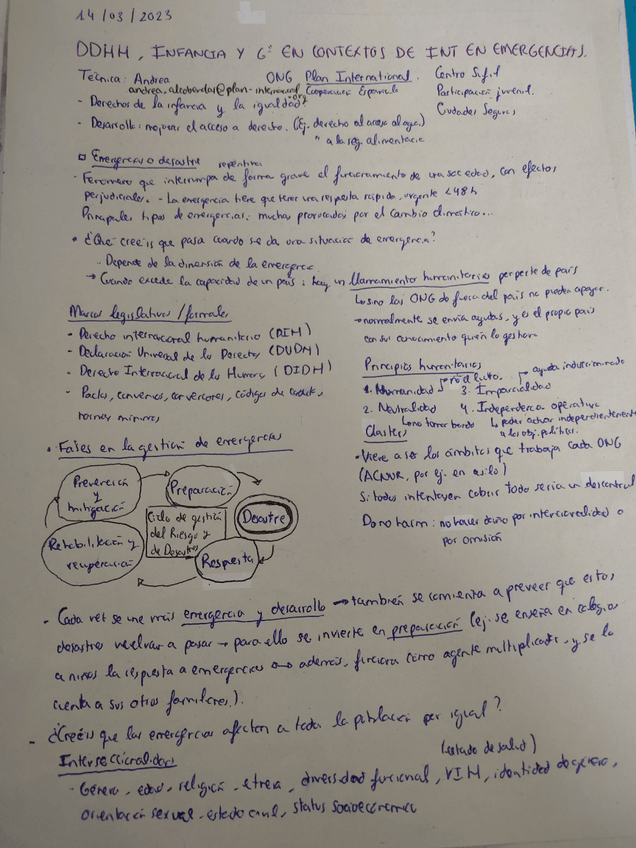 14/03/2023
DDHH, INFANCIA Y Gº EN CONTEXTOS DE INT EN EMERGENCIAS.
Técnica: Andrea ONG Plan International. Centro S.g.f
andrea, alcobendas@plan-international.org Cooperación Española Participación juvenil.
- Derechos de la infancia y la igualdad Ciudades Seguras
- Desarrollo: mejorar el acceso a derecho. (Ej. derecho al acceso al agua)
" a la seg. alimentaria
Emergencia o desastre repentina
- Fenómeno que interrumpa de forma grave el funcionamiento de una sociedad, con efectos
perjudiciales. - La emergencia tiene que tener una respuesta rápida, urgente <48h
Principales tipos de emergencias: muchas provocadas por el cambio climático...
• ¿Qué creéis que pasa cuando se da una situación de emergencia?
- Depende de la dimensión de la emergencia
→ Cuando excede la capacidad de un país: hay un llamamiento humanitario por parte de país
↳ si no las ONG de fuera del país no pueden apoyar.
→ normalmente se envía ayudas, y es el propio país
con su conocimiento quien lo gestiona
Marcos legislativos / formales
- Derecho internacional humanitario (DIH)
- Declaración Universal de los Derechos (DUDH)
- Derecho Internacional de los Humanos (DIDH)
- Pactos, convenios, convenciones, códigos de conducta,
normas mínimas
Principios humanitarios
→ no al lucro. → ayuda indiscriminada
1. Humanidad 3. Imparcialidad
2. Neutralidad 4. Independencia operativa
↳ no tomar bando ↳ poder actuar independientemente
a los obj. políticos.
Clusters
• Viene a ser los ámbitos que trabaja cada ONG
(ACNUR, por ej. en asilo)
Si todos intentasen cobrir todo sería un descontrol
Do no harm: no hacer daño por intencionalidad o
por omisión
• Fases en la gestión de emergencias
Prevención y mitigación
Preparación
Desastre
Respuesta
Rehabilitación y recuperación
Ciclo de gestión
del Riesgo y
de Desastres
- Cada vez se une más emergencia y desarrollo → también se comienza a preveer que estos
desastres vuelvan a pasar → para ello se invierte en preparación (ej. se enseña en colegios
a niños la respuesta a emergencias → además, funciona como agente multiplicador, y se lo
cuenta a sus otros familiares).
- ¿Creéis que las emergencias afectan a toda la población por igual?
Interseccionalidad (estado de salud)
- Género, edad, religión, etnia, diversidad funcional, VIH, identidad de género,
orientación sexual, estado civil, status socioeconómico